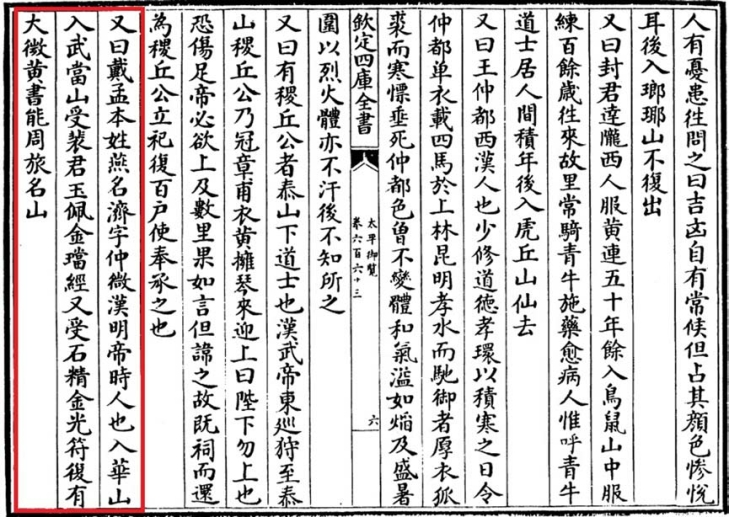 人有憂患往問之曰吉凶自有常候但占其顔色慘悦
耳後入瑯琊山不復出
又曰封君達隴西人服黄連五十年餘入鳥鼠山中服
練百餘歲往來故里常騎青牛施藥愈病人惟呼青牛
道士居人間積年後入虎丘山仙去
又曰王仲都西漢人也少修道德孝環以積寒之日令
仲都单衣載四馬於上林昆明孝水而馳御者厚衣狐
裘而寒慄垂死仲都色曾不變體和氣溢如焰及盛暑
欽定四庫全書
太平御覽
卷六百六十三
六
圍以烈火體亦不汗後不知所之
又曰有稷丘公者泰山下道士也漢武帝東廵狩至泰
山稷丘公乃冠章甫衣黄擁琴來迎上曰陛下勿上也
恐傷足帝必欲上及數里果如言但諱之故既祠而還
為稷丘公立祀復百户使奉承之也
又曰戴孟本姓燕名濟字仲微漢明帝時人也入華山
入武當山受裴君玉佩金璫經又受石精金光符復有
大微黄書能周旅名山